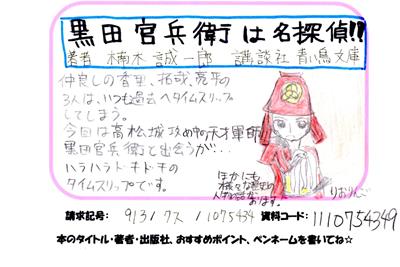 黒田官兵衛は名探偵!!
著者 楠木誠一郎 講談社 青い鳥文庫
仲良しの香里、拓哉、亮平の
3人は、いつも過去へタイムスリップ
してしまう。
今回は高松城攻め中の天才軍師
黒田官兵衛と出会うが…
ハラハラドキドキの
タイムスリップです。
ほかにも
様々な歴史の
人物の話が
あります。
りおりんご
請求記号: 913/クス/1075434 資料コード: 1110754349
本のタイトル・著者・出版社、おすすめポイント、ペンネームを書いてね☆